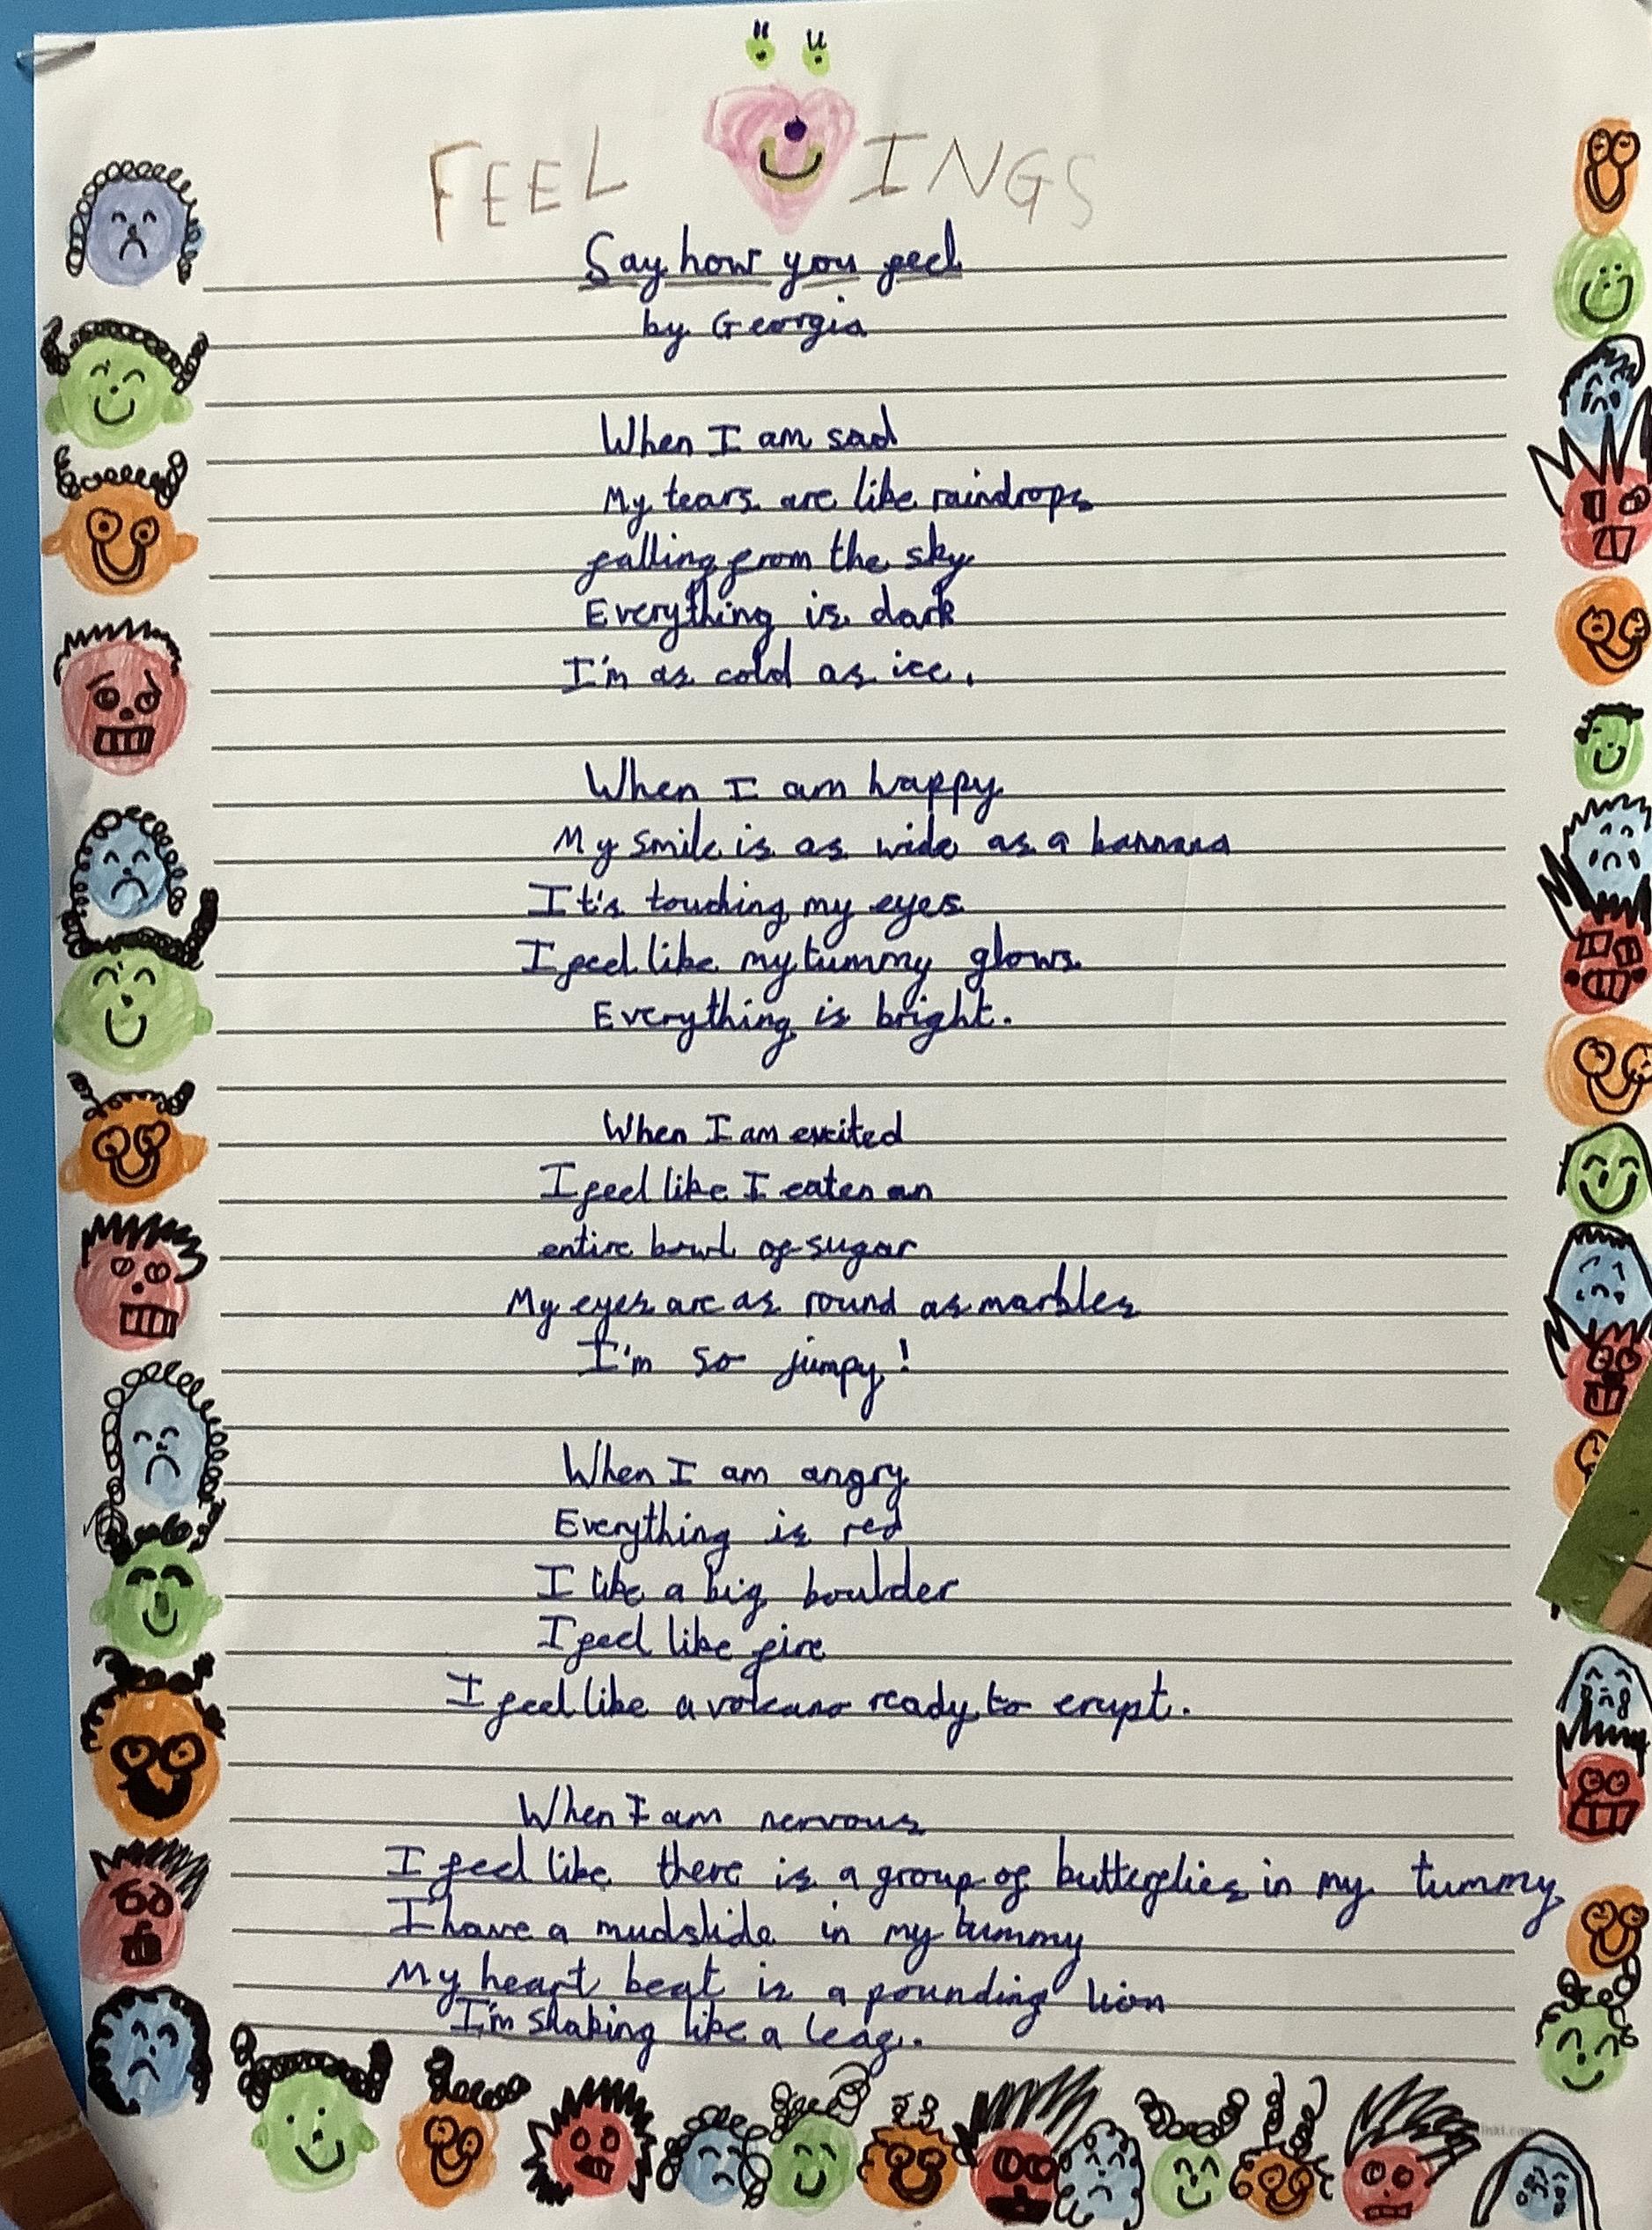 FEELINGS
Say how you feel
by Georgia
When I am sad
My tears are like raindrops
falling from the sky
Everything is dark
I'm as cold as ice.
When I am happy
My smile is as wide as a bannana
It's touching my eyes
I feel like my tummy glows
Everything is bright.
When I am excited
I feel like I eaten an
entire bowl of sugar
My eyes are as round as marbles
I'm so jumpy!
When I am angry
Everything is red
I like a big boulder
I feel like fire
I feel like a volcano ready to erupt.
When I am nervous
I feel like there is a group of butterflies in my tummy
I have a mudslide in my tummy
My heart beat is a pounding lion
I'm shaking like a leaf.